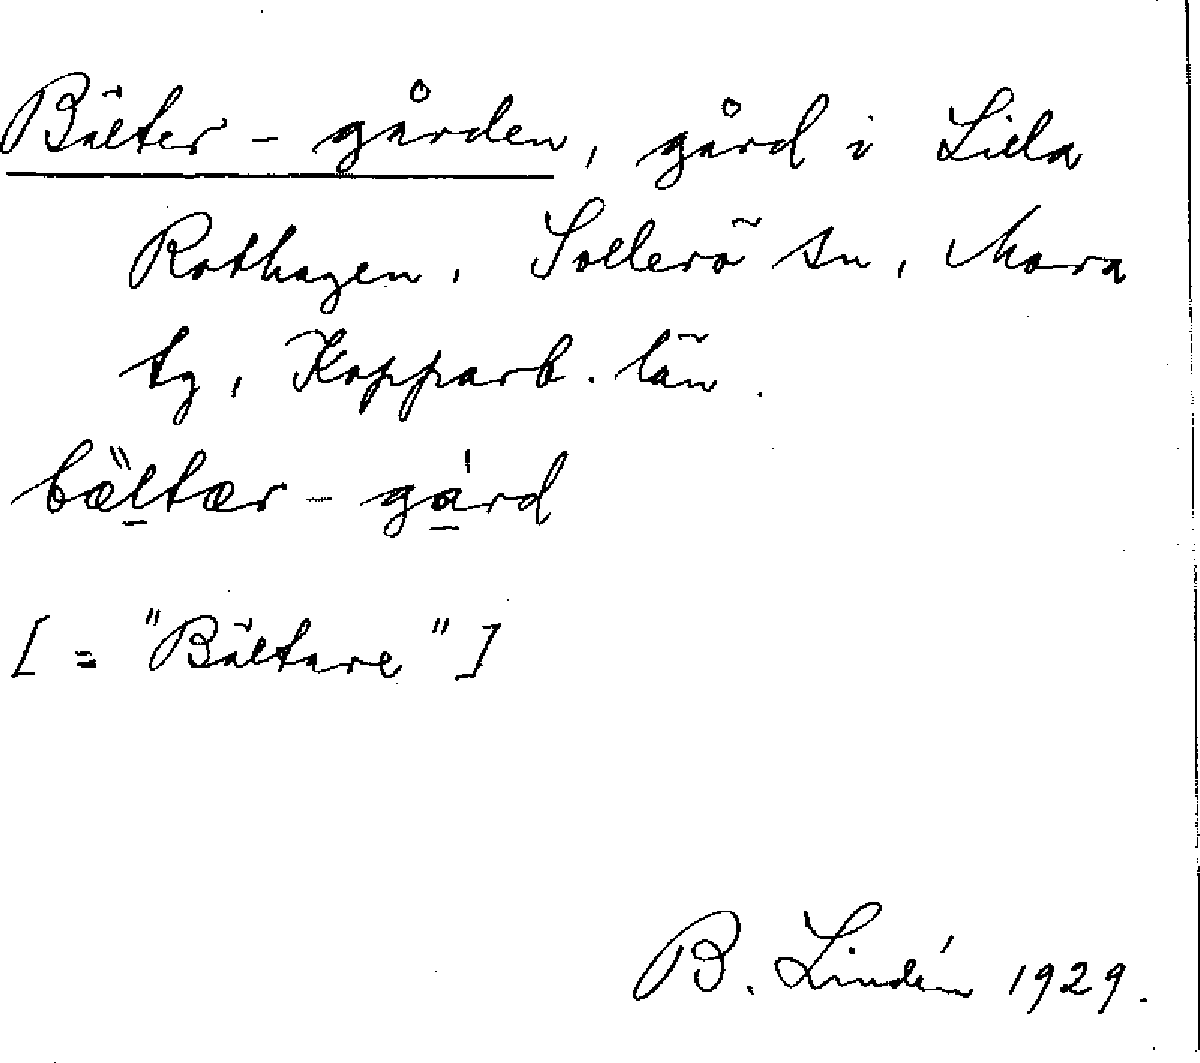 Bälter - gården, gård i Lilla
Rothagen, Sollerö sn, Mora
tg, Kopparb. län.
bæ̎l̠tær - gá̠rd
[ = "Bältare" ]
B. Lindén 1929.